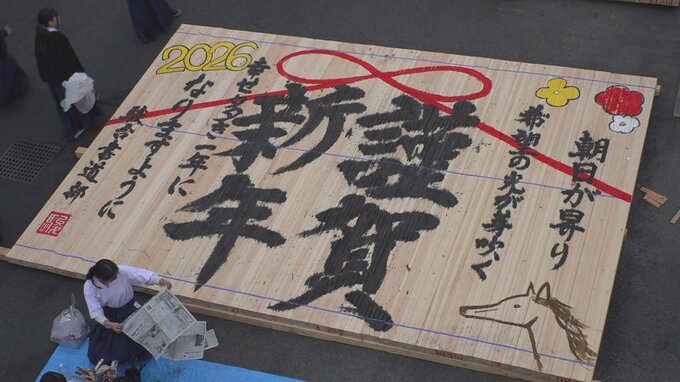 朝日が昇り
希望の光が芽吹く
謹賀
新年
2026
幸せ多き一年に
なりますように